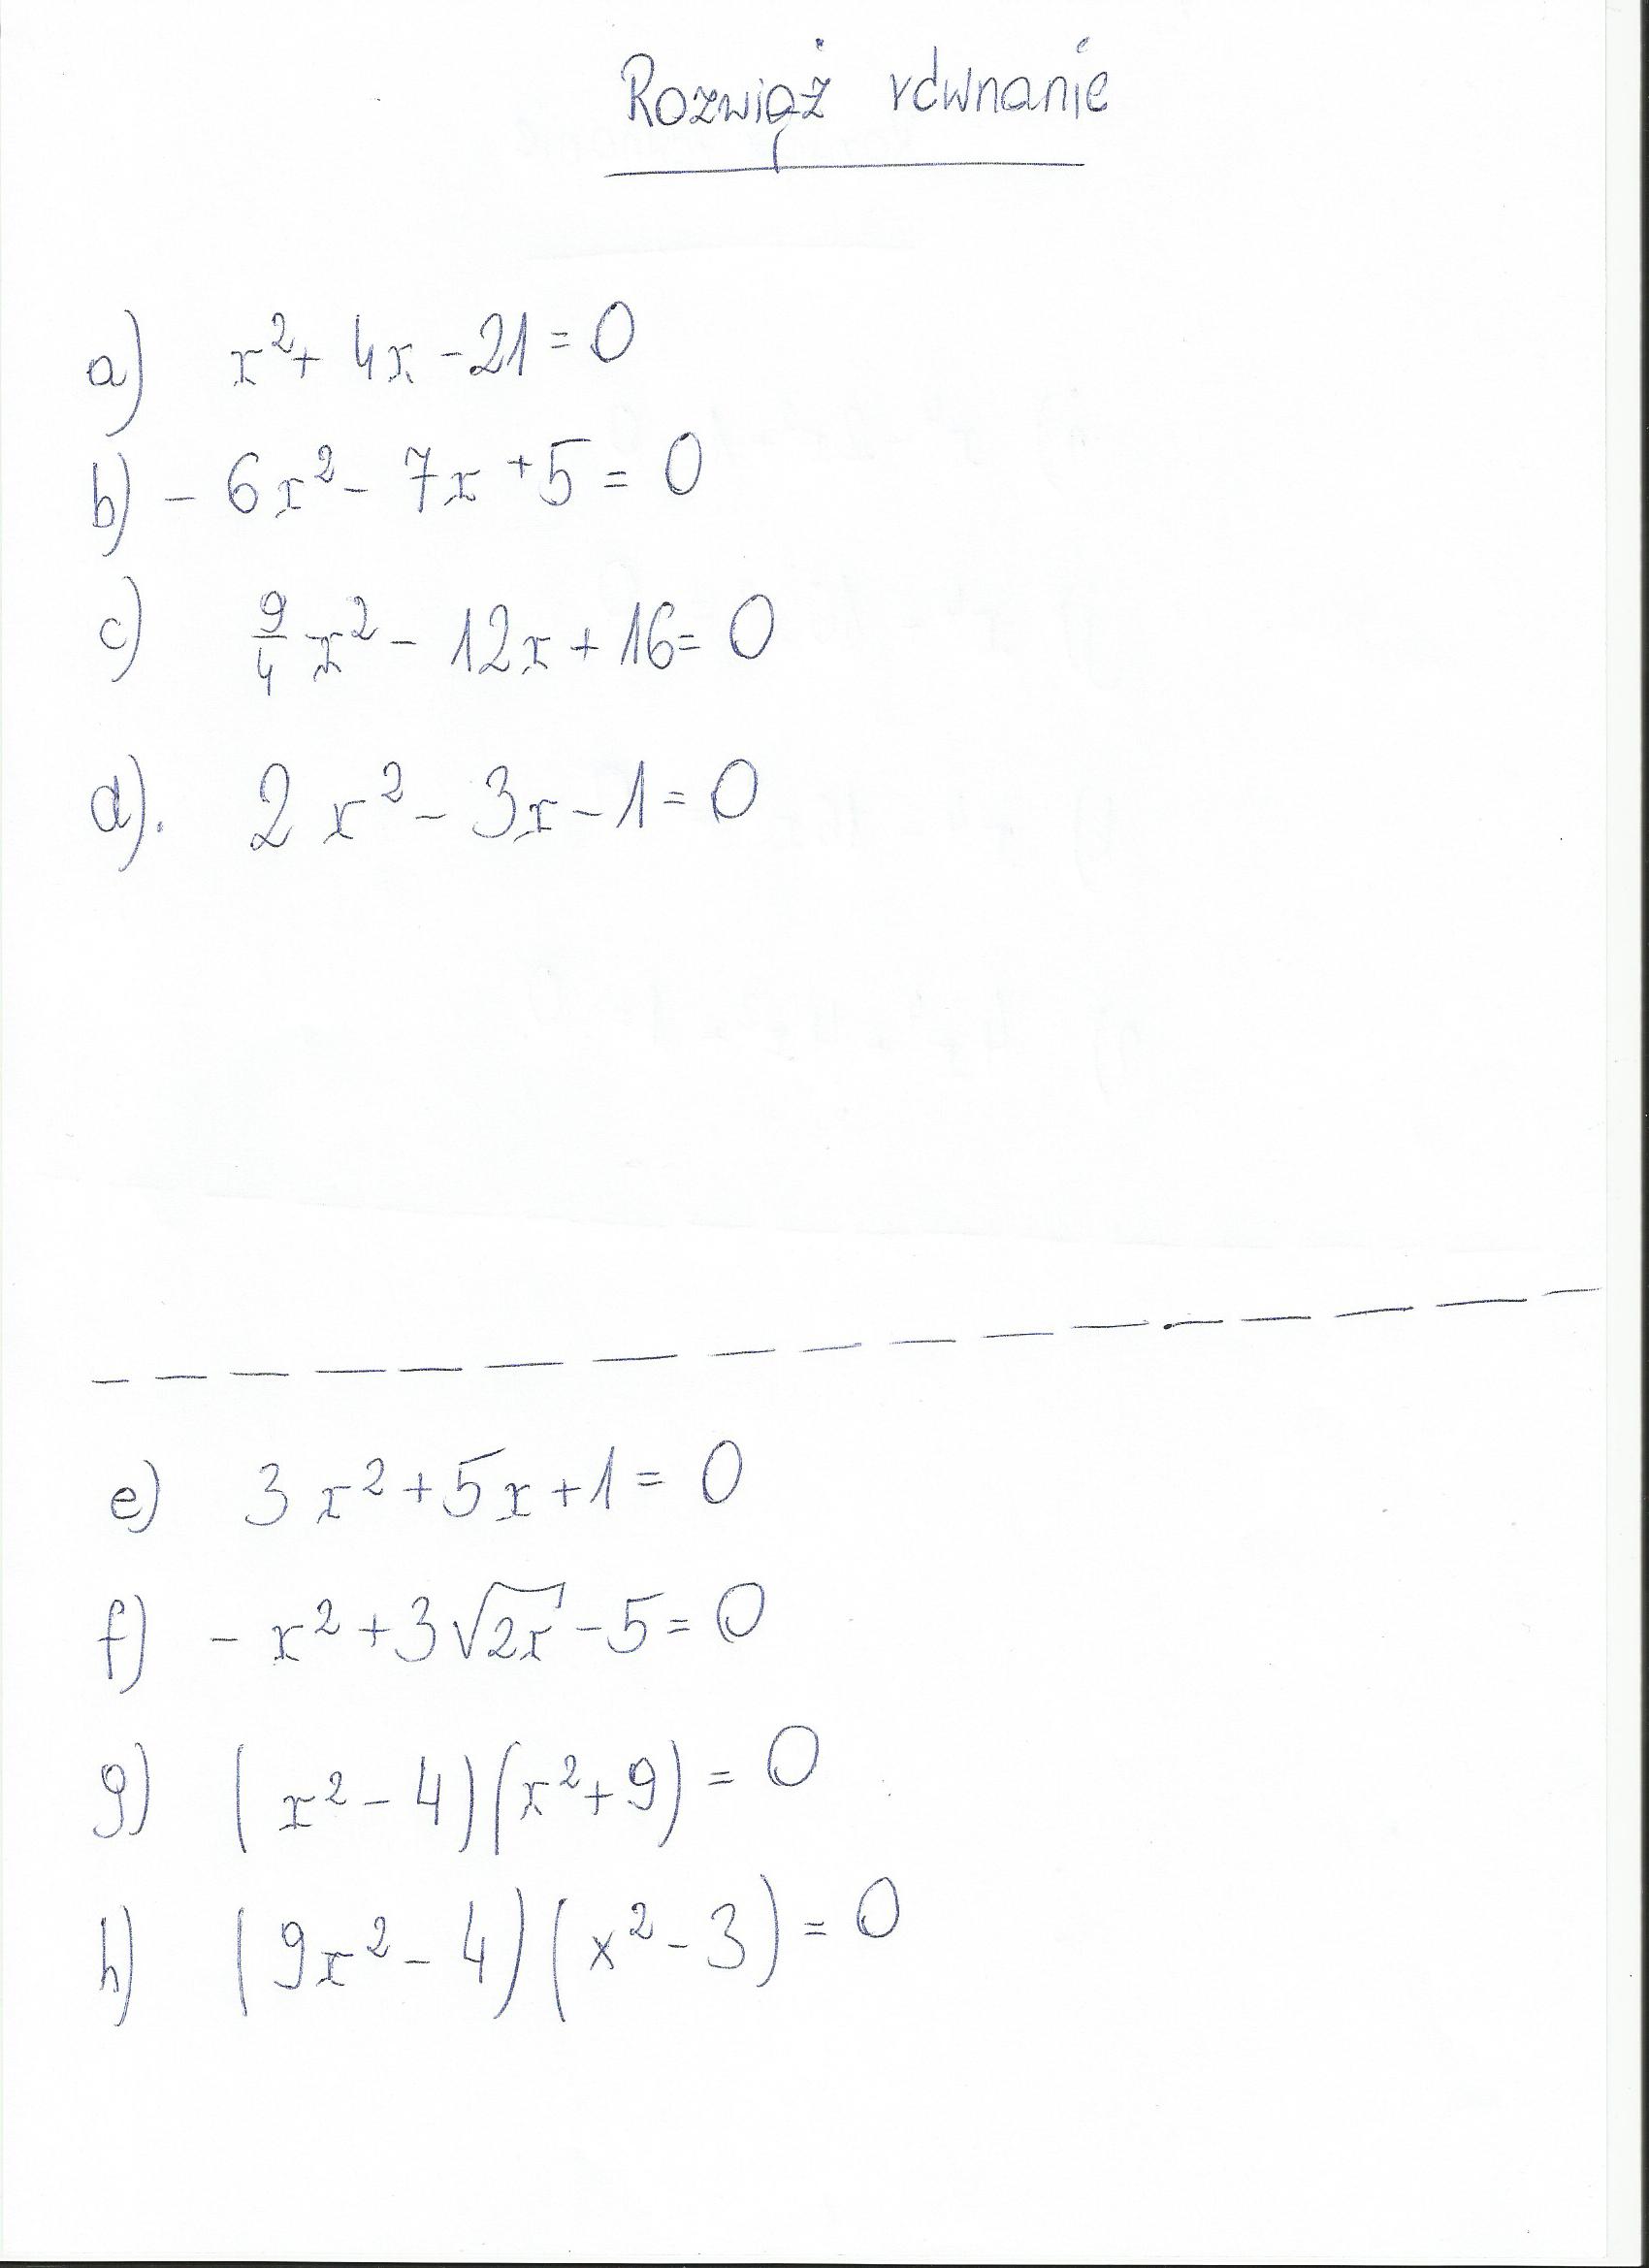 Rozwiąż równanie
a) x²+ 4x -21 = 0
b) - 6x² - 7x + 5 = 0
c) 9/4 x² - 12x + 16 = 0
d). 2x² - 3x - 1 = 0
e) 3x² + 5x + 1 = 0
f) - x² + 3√2x - 5 = 0
g) (x² - 4)(x² + 9) = 0
h) (9x² - 4)(x² - 3) = 0